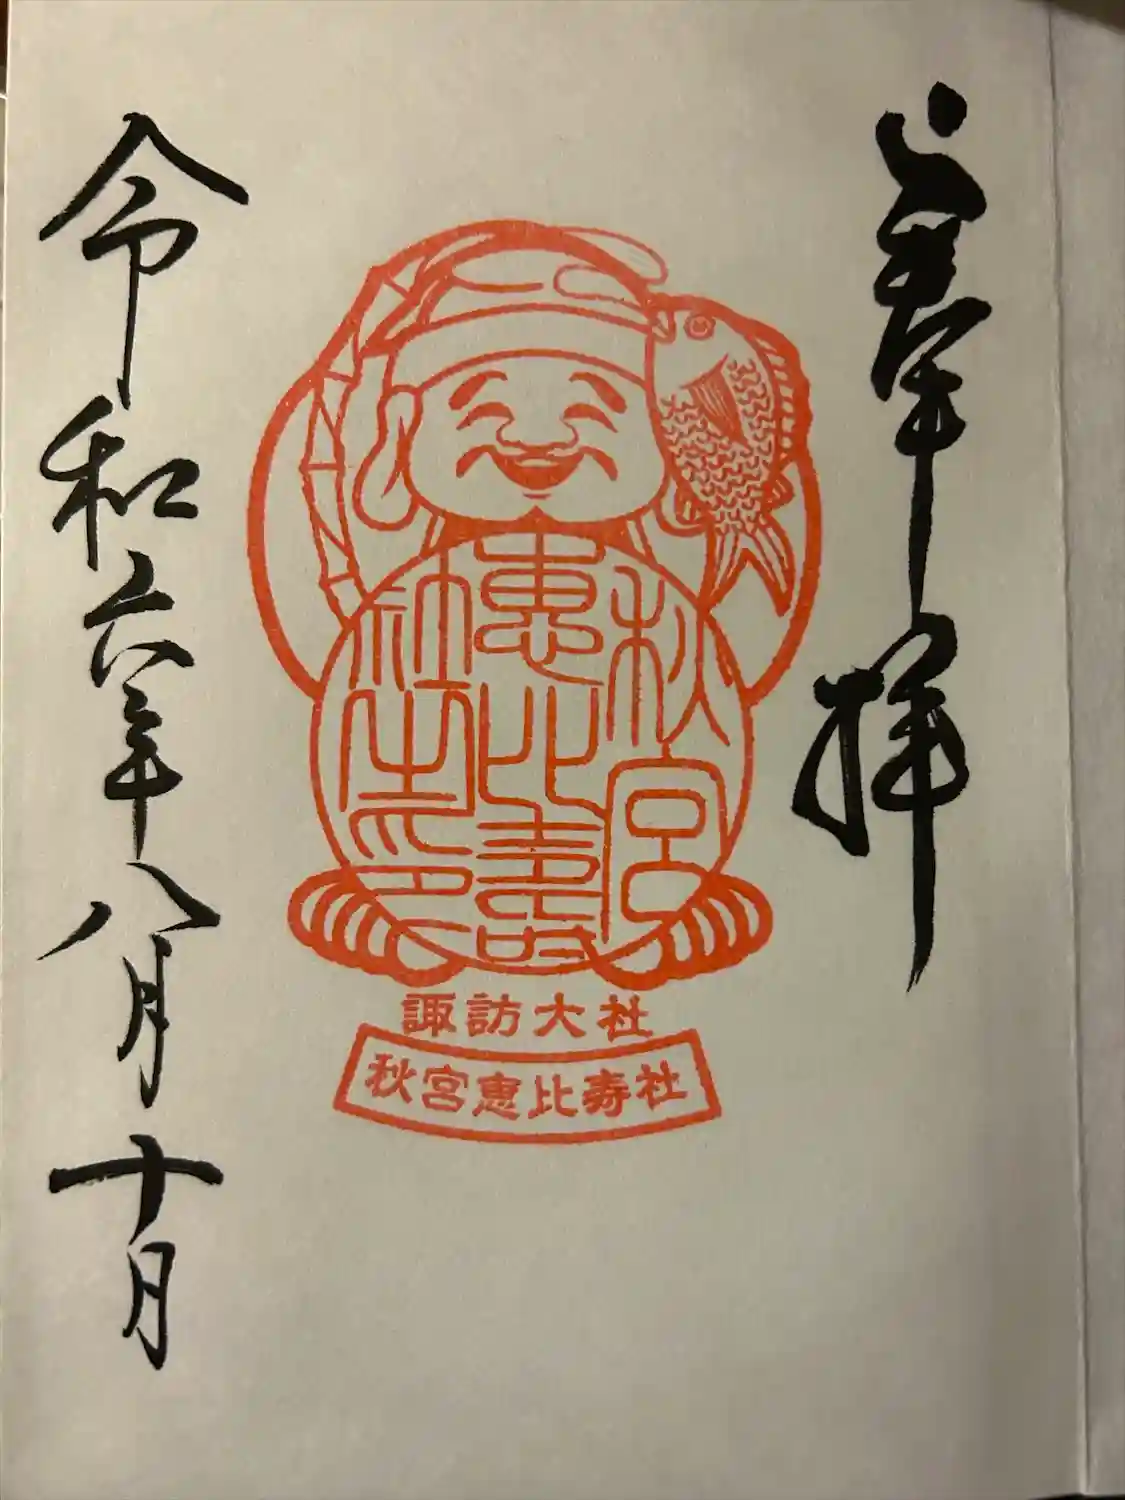 奉拝
秋宮
惠比壽
社之印
諏訪大社
秋宮恵比寿社
令和六年八月十日